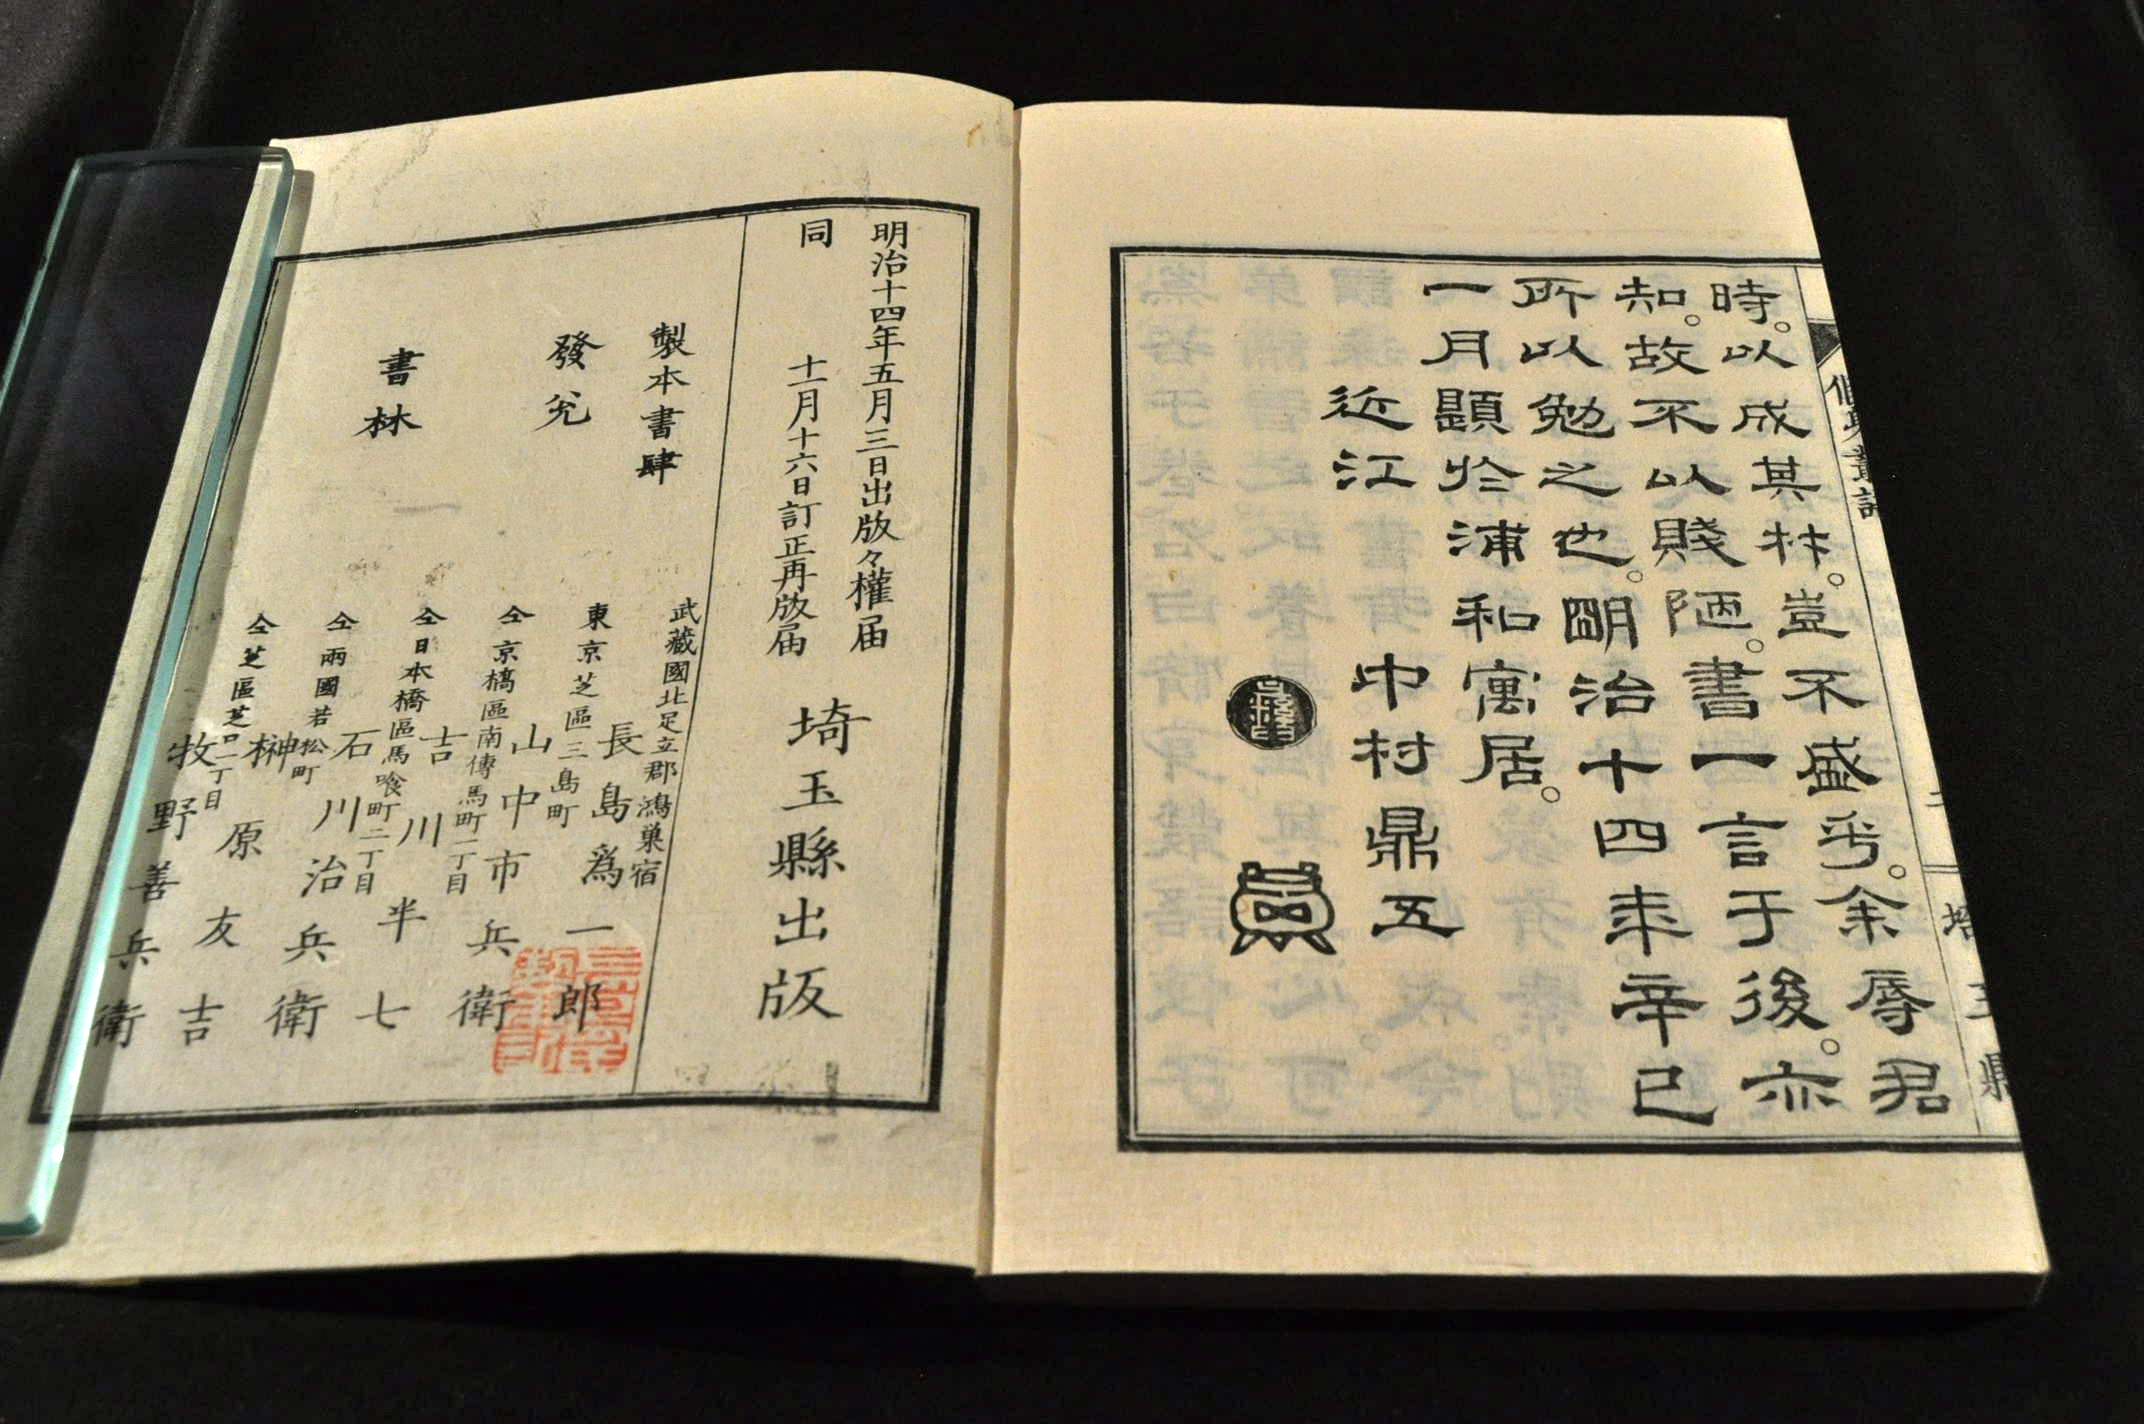 埼玉縣
時。以成其材。豈不盛乎。余辱君
知。故不以賤陋。書一言于後。亦
所以勉之也。明治十四年辛巳
一月題於浦和寓居。
近江 中村鼎五
明治十四年五月三日出版々權届
同 十一月十六日訂正再版届
埼玉縣出版
製本書肆
武藏國北足立郡鴻巣宿
長島爲一郎
發兌
東京芝區三島町
山中市兵衛
仝京橋區南傳馬町一丁目
吉川半七
書林
仝日本橋區馬喰町二丁目
石川治兵衛
仝兩國若松町
榊原友吉
仝芝區芝口二丁目
牧野善兵衛